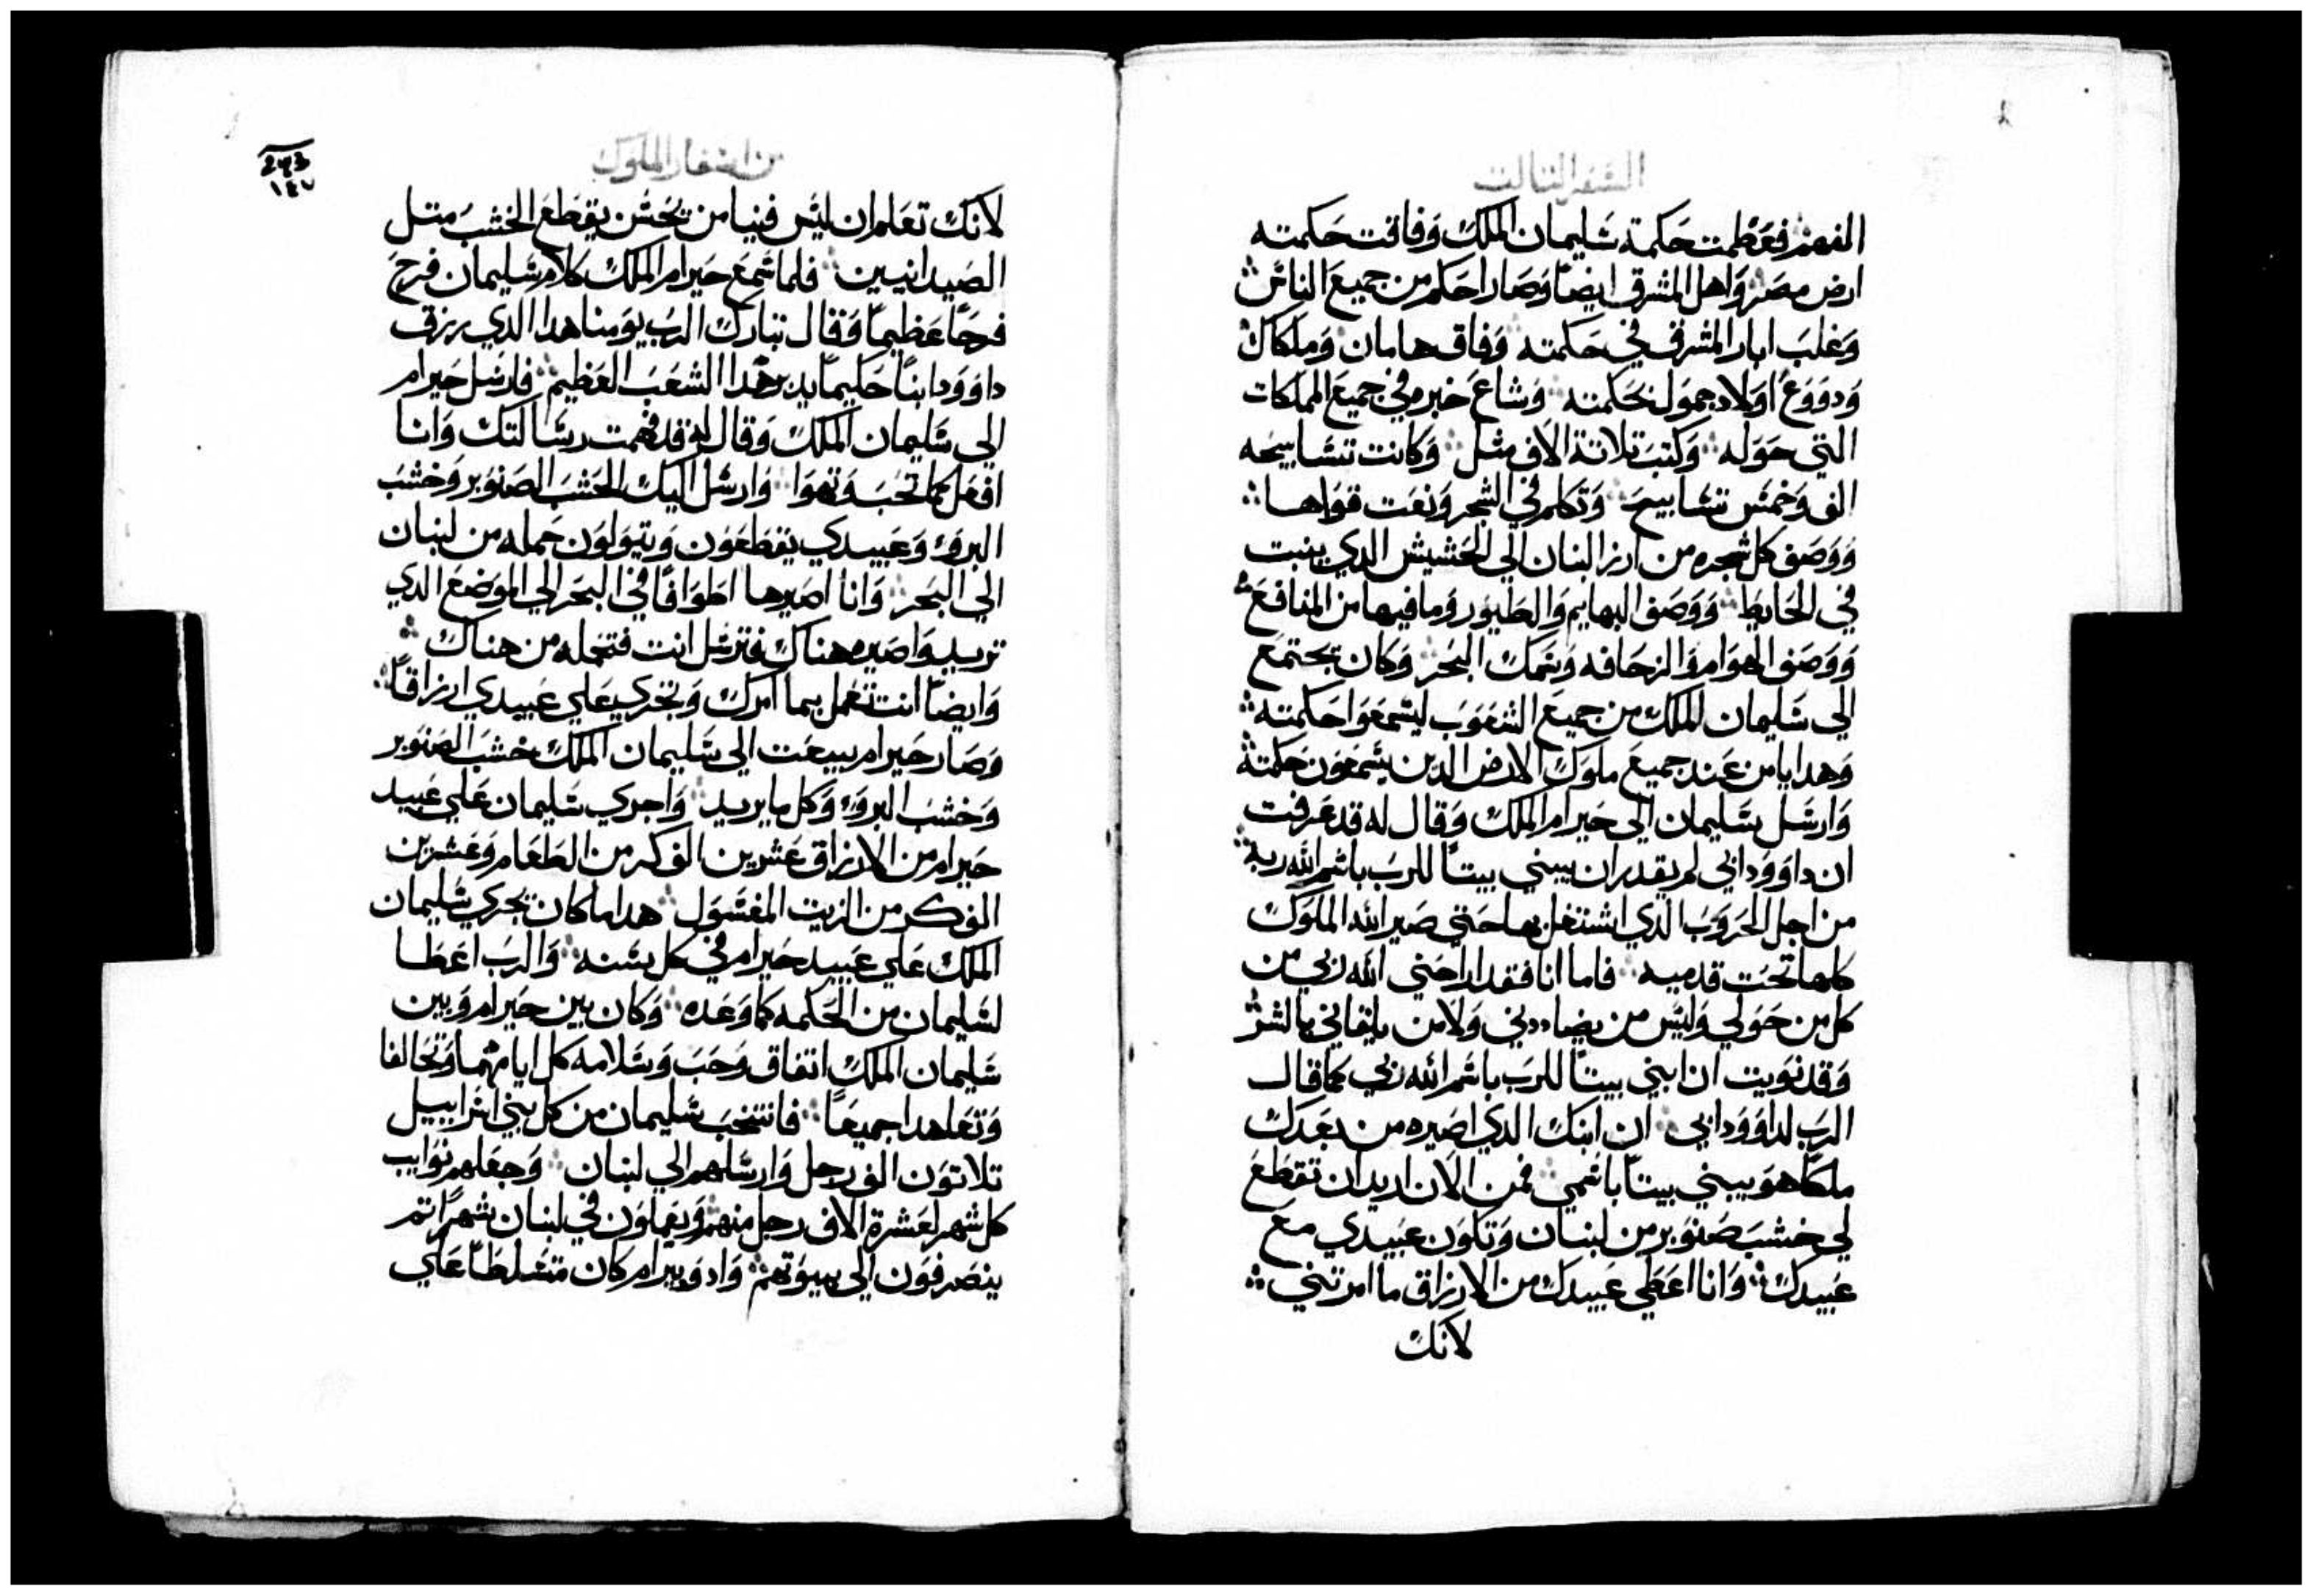 السفر التالت
الفهم فعظمت حكمة سليمان الملك وفاقت حكمته
ارض مصر واهل المشرق ايضاً وصار احكم من جميع الناس
وغلب ابار المشرق في حكمته وفاق هامان وملكال
ودووع اولاد جمول بحكمته وشاع خبره في جميع المملكات
التي حوله وكتب تلاتة الاف مثل وكانت تسابيحه
الف وخمس تسابيح وتكلم في الشجر ونعت قواها
ووصف كل شجره من ارز لبنان الي الحشيش الدي ينبت
في الحايط ووصف البهايم والطيور وما فيها من المنافع
ووصف الهوام والزحافه وسمك البحر وكان يجتمع
الي سليمان الملك من جميع الشعوب ليسمعوا حكمته
وهدايا من عند جميع ملوك الارض الدين يسمعون حكمته
وارسل سليمان الي حيرام الملك وقال له قد عرفت
ان داوود ابي لم يقدر ان يبني بيتاً للرب باسم الله ربه
من اجل الحروب الدي اشتغل بها حتي صير الله الملوك
كلها تحت قدميه فاما انا فقد اراحني الله ربي من
كل من حولي وليس من يضاددني ولا من يلقاني بالشر
وقد نويت ان ابني بيتاً للرب باسم الله ربي كما قال
الرب لداوود ابي ان ابنك الدي اصيره من بعدك
ملكاً هو يبني بيتاً باسمي فمن الان اريد ان تقطع
لي خشب صنوبر من لبنان وتكون عبيدي مع
عبيدك وانا اعطي عبيدك من الارزاق ما امرتني
لانك
من اسفار الملوك
243
١٤٧
لانك تعلم ان ليس فينا من يحسن يقطع الخشب متل
الصيدانيين فلما سمع حيرام الملك كلام سليمان فرح
فرحاً عظيماً وقال تبارك الرب يومنا هدا الدي رزق
داوود ابناً حكيماً يدبر هدا الشعب العظيم فارسل حيرام
الي سليمان الملك وقال له قد فهمت رسالتك وانا
افعل كما تحب وتهوا وارسل اليك الخشب الصنوبر وخشب
البروء وعبيدي يقطعون ويتولون حمله من لبنان
الي البحر وانا اصيرها اطوافاً في البحر الي الموضع الدي
تريد واصيره هناك فترسل انت فتحمله من هناك
وايضاً انت تعمل بما امرك وتجري علي عبيدي ارزاقاً
وصار حيرام يبعت الي سليمان الملك خشب الصنوبر
وخشب البروء وكل ما يريد واجري سليمان علي عبيد
حيرام من الارزاق عشرين الف كر من الطعام وعشرين
الف كر من الزيت المغسول هدا ما كان يجري سليمان
الملك علي عبيد حيرام في كل سنه والرب اعطا
لسليمان من الحكمه كما وعده وكان بين حيرام وبين
سليمان الملك اتفاق وحب وسلامه كل ايامهما وتحالفا
وتعاهدا جميعاً فانتخب سليمان من كل بني اسراييل
تلاتون الف رجل وارسلهم الي لبنان وجعلهم نوايب
كل شهر لعشرة الاف رجل منهم ويعملون في لبنان شهراً تم
ينصرفون الي بيوتهم وادوبيرام كان متسلطاً علي